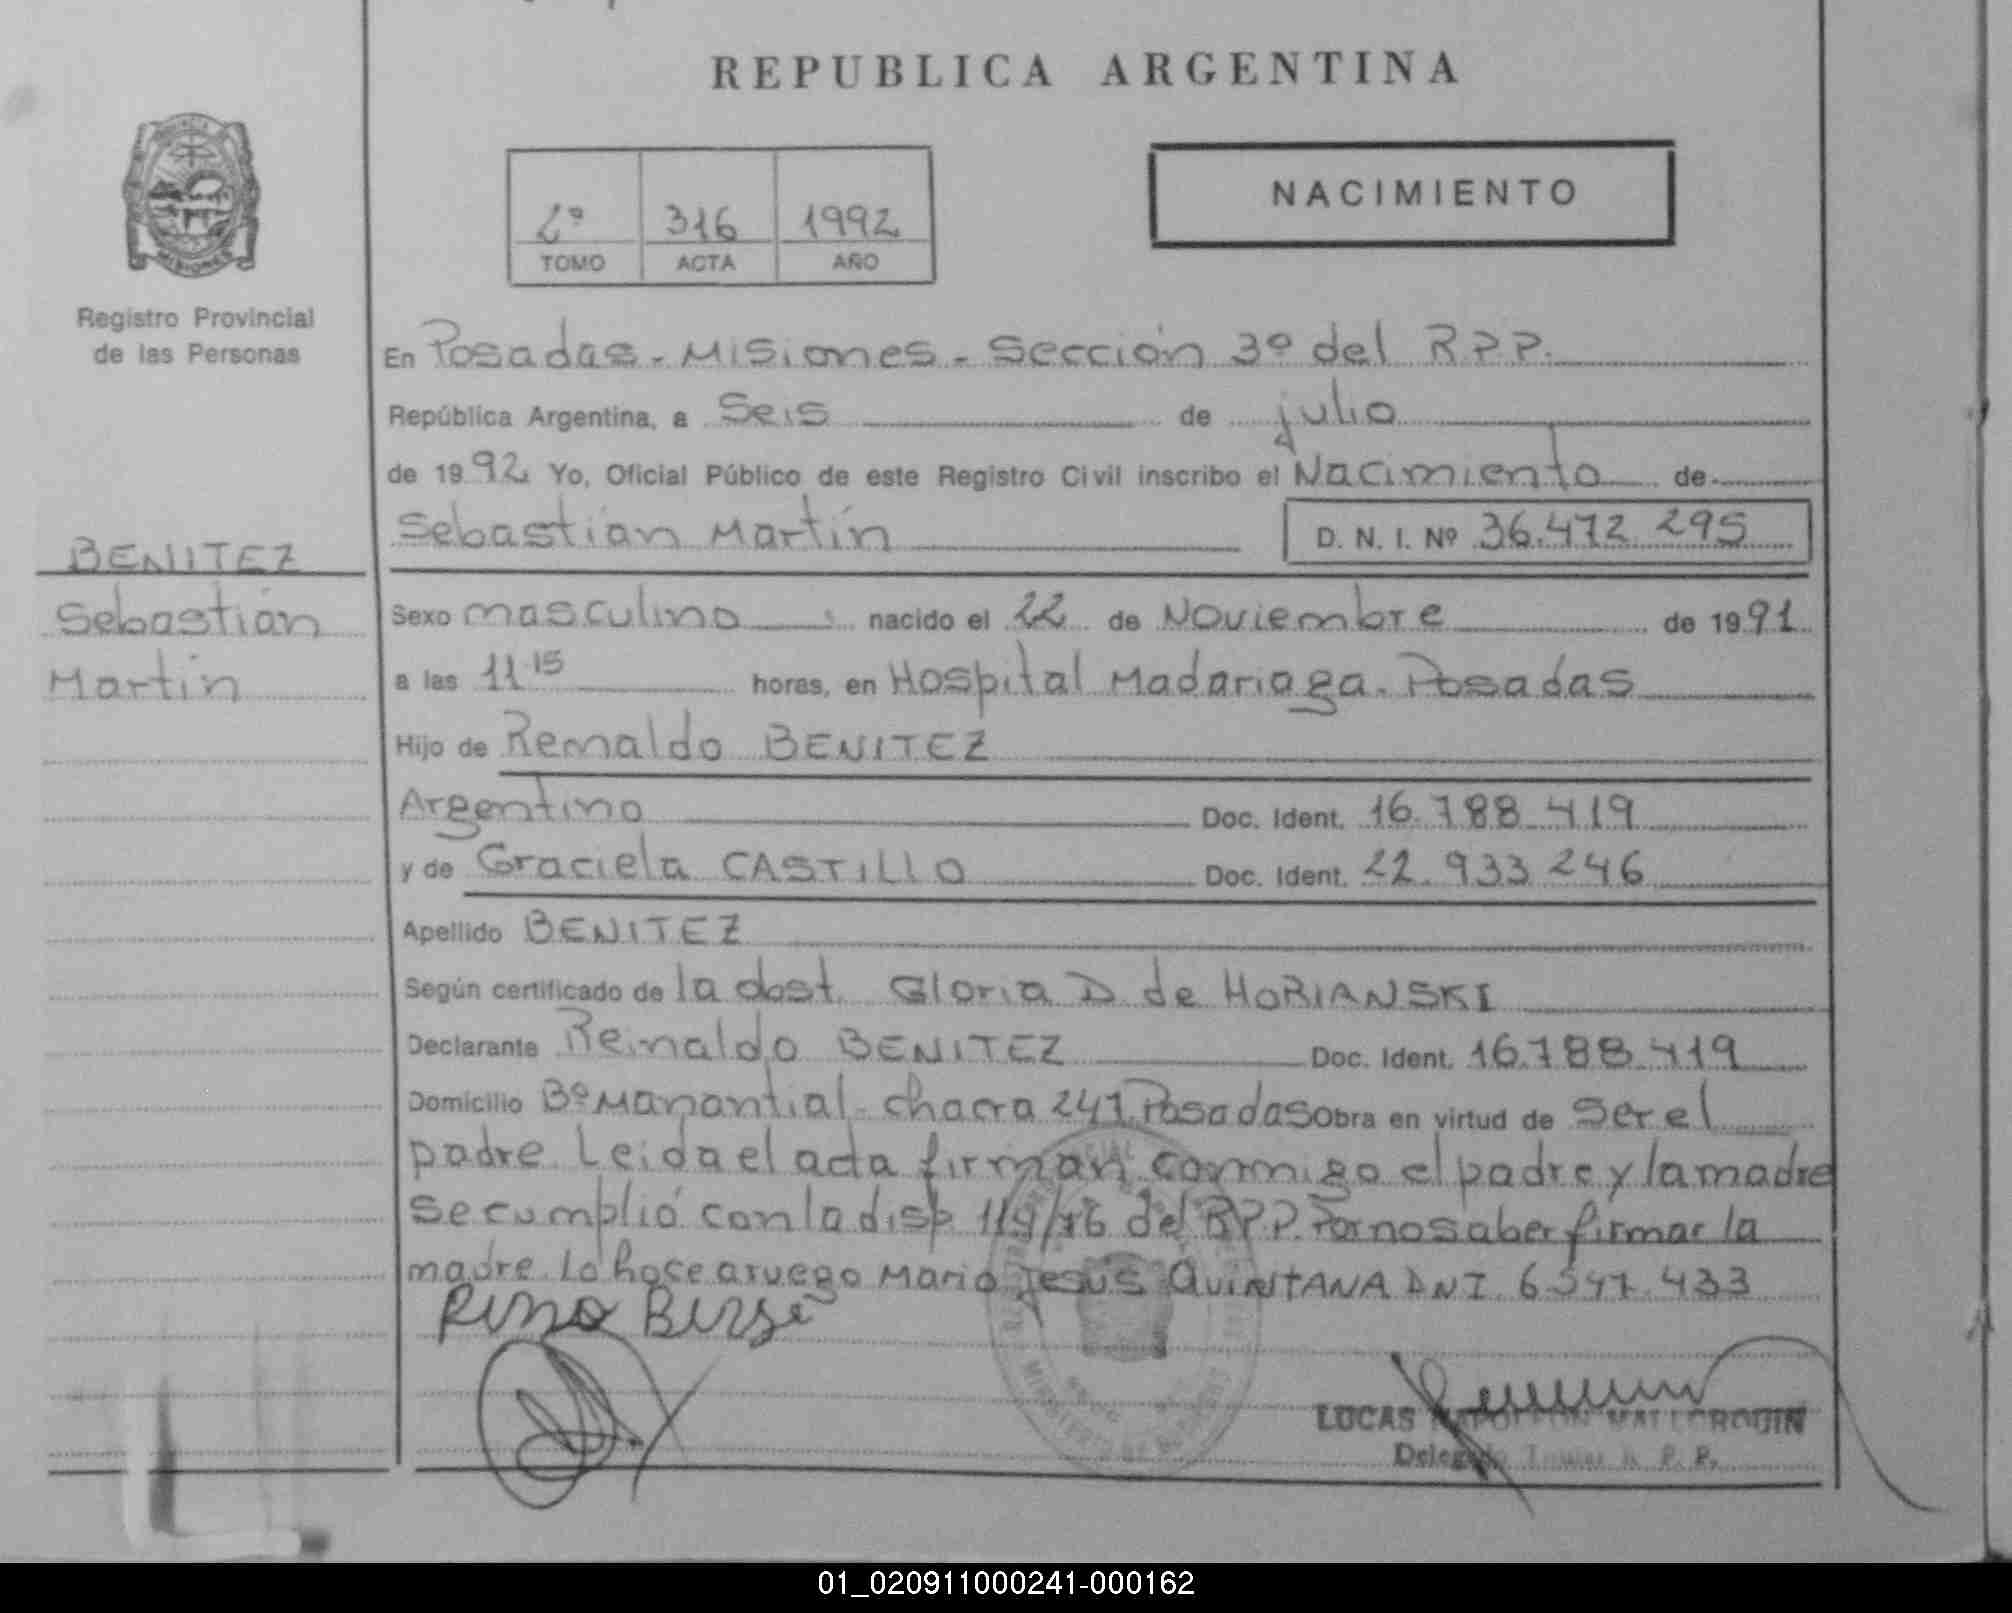 REPUBLICA ARGENTINA
NACIMIENTO
2º 316 1992
TOMO ACTA AÑO
MISIONES
Registro Provincial
de las Personas
En Posadas - Misiones - Sección 3º del R.P.P.
República Argentina, a Seis de julio
de 1992 Yo, Oficial Público de este Registro Civil inscribo el Nacimiento de
Sebastián Martín D. N. I. Nº 36.472 295
BENITEZ
Sebastián
Martín
Sexo masculino nacido el 22 de Noviembre de 1991
a las 11 15 horas, en Hospital Madariaga. Posadas
Hijo de Remaldo BENITEZ
Argentino Doc. Ident. 16.788 419
y de Graciela CASTILLO Doc. Ident. 22.933 246
Apellido BENITEZ
Según certificado de la obst. Gloria D de HORIANSKI
Declarante Reinaldo BENITEZ Doc. Ident. 16.788 419
Domicilio Bº Manantial - chacra 247. Posadas Obra en virtud de Ser el
padre. Leida el acta firman conmigo el padre y la madre
se cumplió con la disp. 119/76 del R.P.P. Por no saber firmar la
madre lo hace a ruego Mario Jesús QUINTANA DNI 6 547 433
LUCAS NAPOLEON MALLORQUIN
R. P. P.
01_020911000241-000162